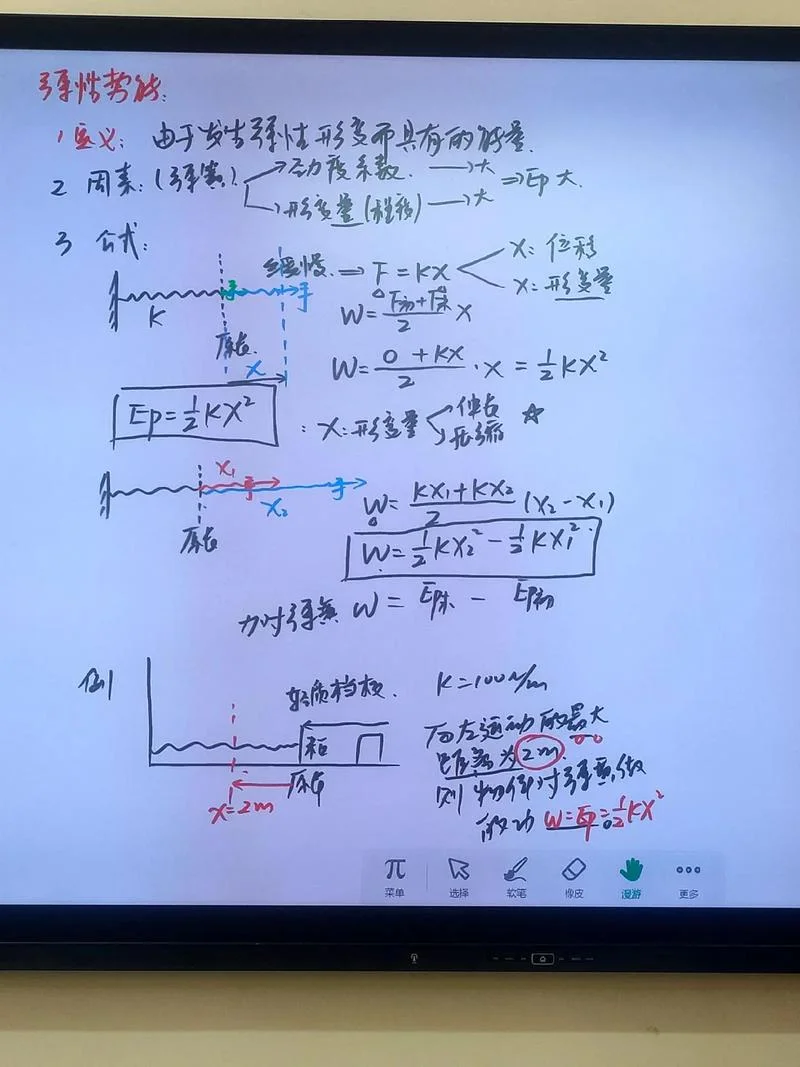 弹性势能:
1 定义: 由于发生弹性形变而具有的能量.
2 因素: (弹簧) 劲度系数. → 大 ⇒ Ep 大.
形变量(程度) → 大
3 公式:
缓慢. ⇒ F = KX
X: 位移
X: 形变量
K
W = (F初 + F末)/2 X
原长.
X
W = (0 + KX)/2 · X = 1/2 KX²
Ep = 1/2 KX²
: X: 形变量 伸长 ☆
压缩
X₁
X₂
原长
W = (KX₁ + KX₂)/2 (X₂ - X₁)
W = 1/2 KX₂² - 1/2 KX₁²
力对弹簧 W = Ep末 - Ep初
例
轻质档板.
K = 100N/m
向左运动的最大
距离为 2m.
则 物体对弹簧做
的功 W = Ep = 1/2 KX²
原长
X = 2m
菜单 选择 软笔 橡皮 漫游 更多